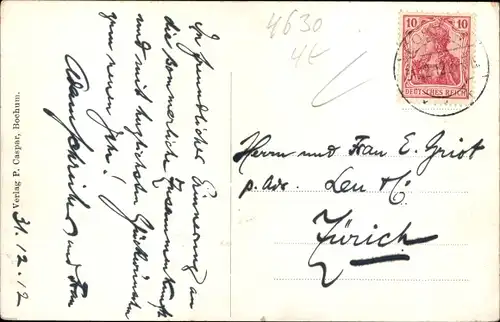 4630
In freundlicher Erinnerung an
die sommerliche Zusammenkunft
und mit herzlichsten Glückwünschen
zum neuen Jahr!
und Frau
31.12.12
Verlag P. Caspar, Bochum.
10 10
DEUTSCHES REICH
Herrn und Frau E. Griot
p. adr. Leu & C.
Zürich